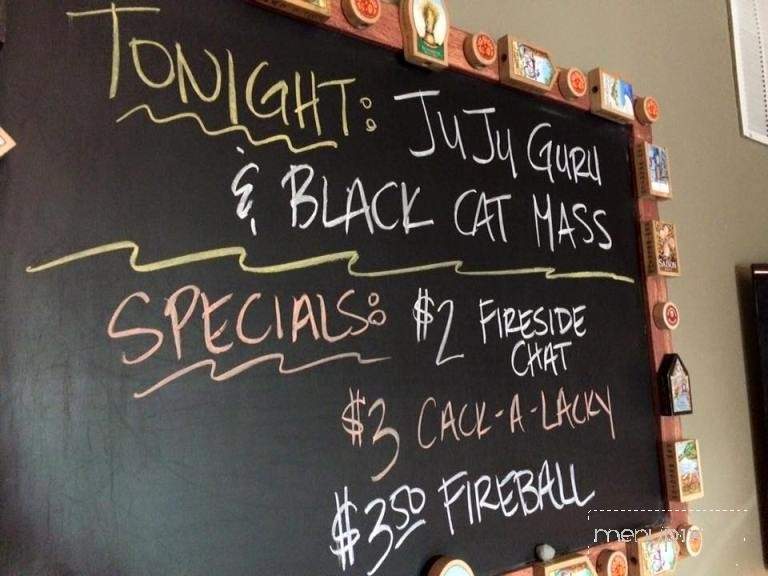 TONIGHT: JUJU GURU
& BLACK CAT MASS
SPECIALS: $2 FIRESIDE
CHAT
$3 CACK-A-LACKY
$3.50 FIREBALL